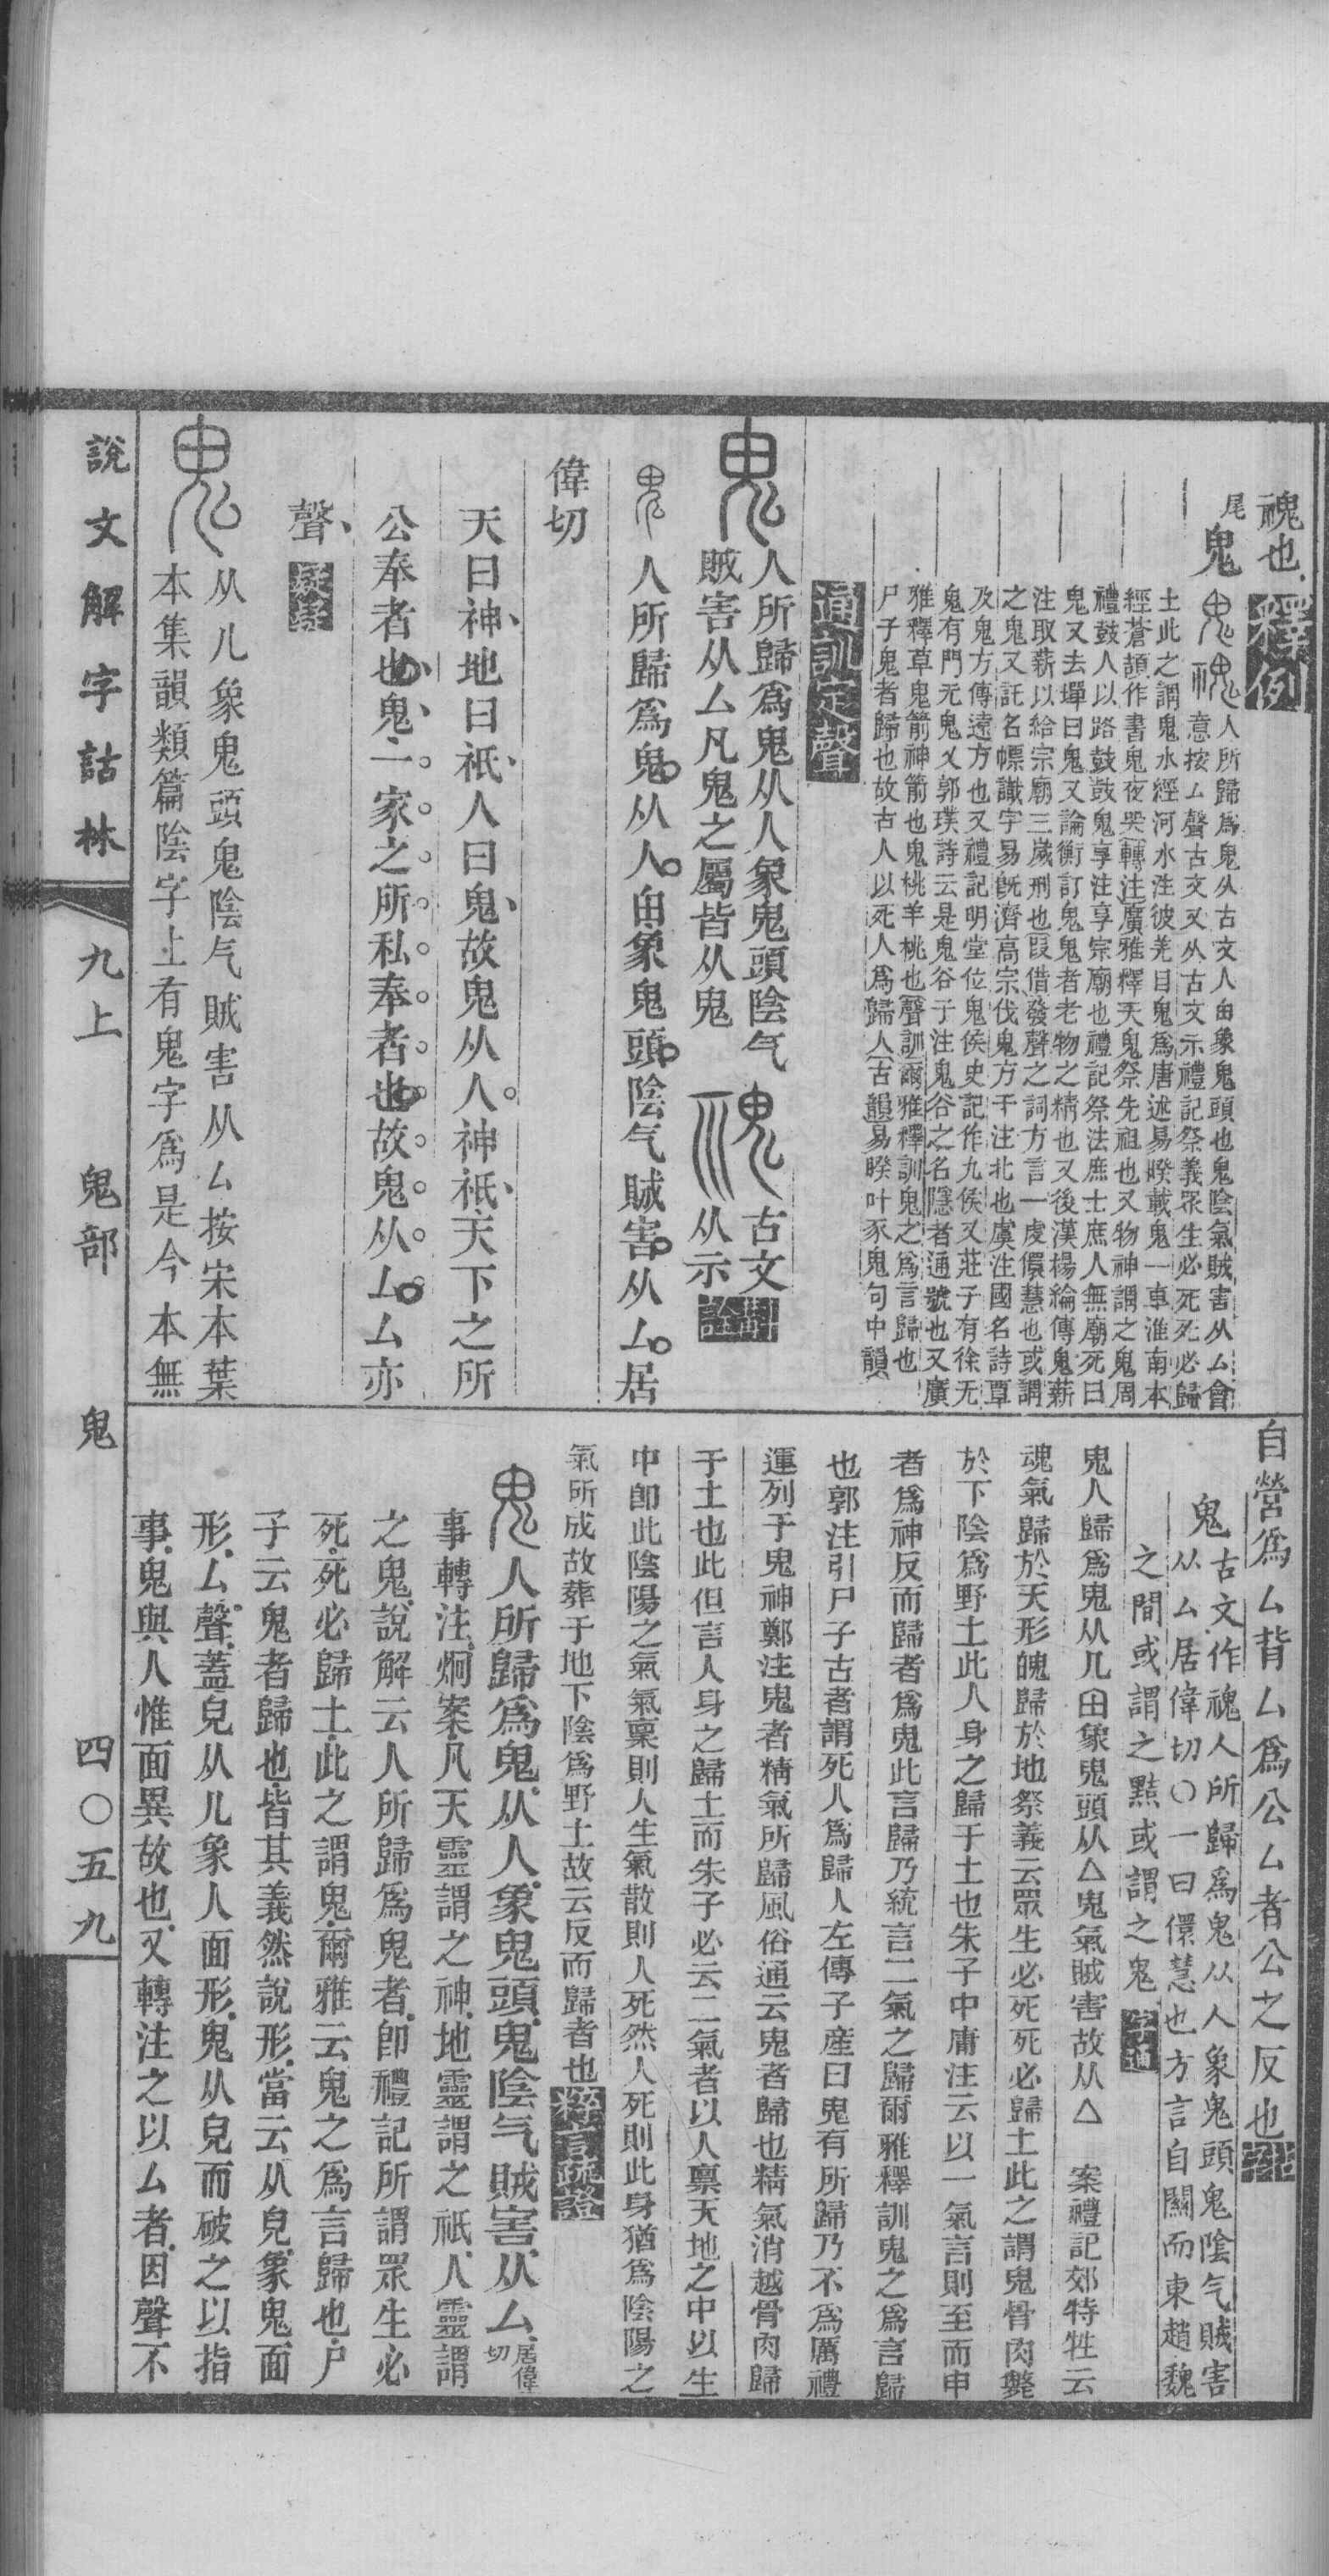 䰠也釋例
尾鬼𩲡人所歸爲鬼从古文人甶象鬼頭也鬼陰氣賊害从厶會
意按厶聲古文又从古文示禮記祭義眾生必死死必歸
土此之謂鬼水經河水注彼羌目鬼爲唐述易睽載鬼一車淮南本
經蒼頡作書鬼夜哭轉注廣雅釋天鬼祭先祖也又物神謂之鬼周
禮鼓人以路鼓鼓鬼享注享宗廟也禮記祭法庶士庶人無廟死曰
鬼又去墠曰鬼又論衡訂鬼鬼者老物之精也又後漢楊綸傳鬼薪
注取薪以給宗廟三歲刑也叚借發聲之詞方言一虔儇慧也或謂
之鬼又託名幖識字易旣濟高宗伐鬼方干注北也虞注國名詩覃
及鬼方傳遠方也又禮記明堂位鬼侯史記作九侯又莊子有徐无
鬼有門无鬼又郭璞詩云是鬼谷子注鬼谷之名隱者通號也又廣
雅釋草鬼箭神箭也鬼桃羊桃也聲訓爾雅釋訓鬼之爲言歸也
尸子鬼者歸也故古人以死人爲歸人古韻易睽叶豕鬼句中韻
通訓定聲
鬼人所歸爲鬼从人象鬼頭陰气
賊害从厶凡鬼之屬皆从鬼
𩲡古文
从示
鬼人所歸爲鬼从人甶象鬼頭陰气賊害从厶居
偉切
天曰神地曰祇人曰鬼故鬼从人神祇天下之所
公奉者也鬼一家之所私奉者也故鬼从厶厶亦
聲
鬼从儿象鬼頭鬼陰气賊害从厶按宋本葉
本集韻類篇陰字上有鬼字爲是今本無
自營爲厶背厶爲公厶者公之反也
鬼古文作䰠人所歸爲鬼从人象鬼頭鬼陰气賊害
从厶居偉切〇一曰儇慧也方言自關而東趙魏
之間或謂之黠或謂之鬼
鬼人歸爲鬼从几甶象鬼頭从厶鬼氣賊害故从厶 案禮記郊特牲云
魂氣歸於天形魄歸於地祭義云眾生必死死必歸土此之謂鬼骨肉斃
於下陰爲野土此人身之歸于土也朱子中庸注云以一氣言則至而申
者爲神反而歸者爲鬼此言歸乃統言二氣之歸爾雅釋訓鬼之爲言歸
也郭注引尸子古者謂死人爲歸人左傳子產曰鬼有所歸乃不爲厲禮
運列于鬼神鄭注鬼者精氣所歸風俗通云鬼者歸也精氣消越骨肉歸
于土也此但言人身之歸土而朱子必云二氣者以人禀天地之中以生
中卽此陰陽之氣氣稟則人生氣散則人死然人死則此身猶爲陰陽之
氣所成故葬于地下陰爲野土故云反而歸者也
鬼人所歸爲鬼从人象鬼頭鬼陰气賊害从厶居偉切
事轉注烱案凡天靈謂之神地靈謂之祇人靈謂
之鬼說解云人所歸爲鬼者卽禮記所謂眾生必
死死必歸土此之謂鬼爾雅云鬼之爲言歸也尸
子云鬼者歸也皆其義然說形當云从皃象鬼面
形厶聲蓋皃从儿象人面形鬼从皃而破之以指
事鬼與人惟面異故也又轉注之以厶者因聲不
說文解字詁林 九上 鬼部 鬼 四〇五九